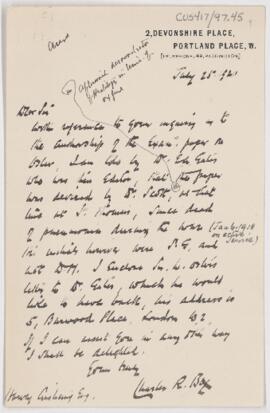 CUS417/97.45
2, DEVONSHIRE PLACE,
PORTLAND PLACE, W.
July 25th 1921
Afterwards demonstrator
of Histology in Univ. of
Oxford
Dear Sir
With reference to your inquiry as to
the authorship of the Exam: paper on
Osler, I am told by Mr. Ed. Gales
who was his Editor that the paper
was devised by Dr. Scott, at that
time at St. Thomas, since dead
of pneumonia during the war. (Jan 6. 1918
on active
service)
His initials however were S.G. and
not D.M. I enclose Sir W. Osler's
letter to Mr. Gales, which he would
like to have back, his address is
5, Burwood Place, London W2
If I can assist you in any other way
I shall be delighted.
Yours truly
Charles R. Box
Harvey Cushing Esq.